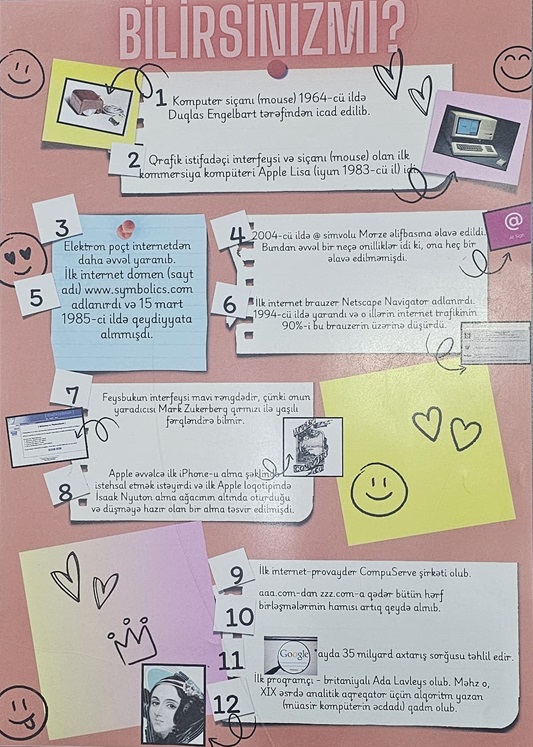 BİLİRSİNİZMİ?
1 Komputer siçanı (mouse) 1964-cü ildə
Duqlas Engelbart tərəfindən icad edilib.
2 Qrafik istifadəçi interfeysi və siçanı (mouse) olan ilk
kommersiya kompüteri Apple Lisa (iyun 1983-cü il) idi.
3
Elektron poçt internetdən
daha əvvəl yaranıb.
5
İlk internet domen (sayt
adı) www.symbolics.com
adlanırdı və 15 mart
1985-ci ildə qeydiyyata
alınmışdı.
4 2004-cü ildə @ simvolu Morze əlifbasına əlavə edildi.
Bundan əvvəl bir neçə onilliklər idi ki, ona heç bir
əlavə edilməmişdi.
@
6 İlk internet brauzer Netscape Navigator adlanırdı.
1994-cü ildə yarandı və o illərin internet trafikinin
90%-i bu brauzerin üzərinə düşürdü.
7 Feysbukun interfeysi mavi rəngdədir, çünki onun
yaradıcısı Mark Zukerberg qırmızı ilə yaşılı
fərqləndirə bilmir.
8 Apple əvvəlcə ilk iPhone-u alma şəklində
istehsal etmək istəyirdi və ilk Apple loqotipində
İsaak Nyuton alma ağacının altında oturduğu
və düşməyə hazır olan bir alma təsvir edilmişdi.
9 İlk internet-provayder CompuServe şirkəti olub.
10 aaa.com-dan zzz.com-a qədər bütün hərf
birləşmələrinin hamısı artıq qeydə alınıb.
11 Google "ayda 35 milyard axtarış sorğusu təhlil edir.
12 İlk proqramçı - britaniyalı Ada Lavleys olub. Məhz o,
XIX əsrdə analitik aqreqator üçün alqoritm yazan
(müasir kompüterin əcdadı) qadın olub.